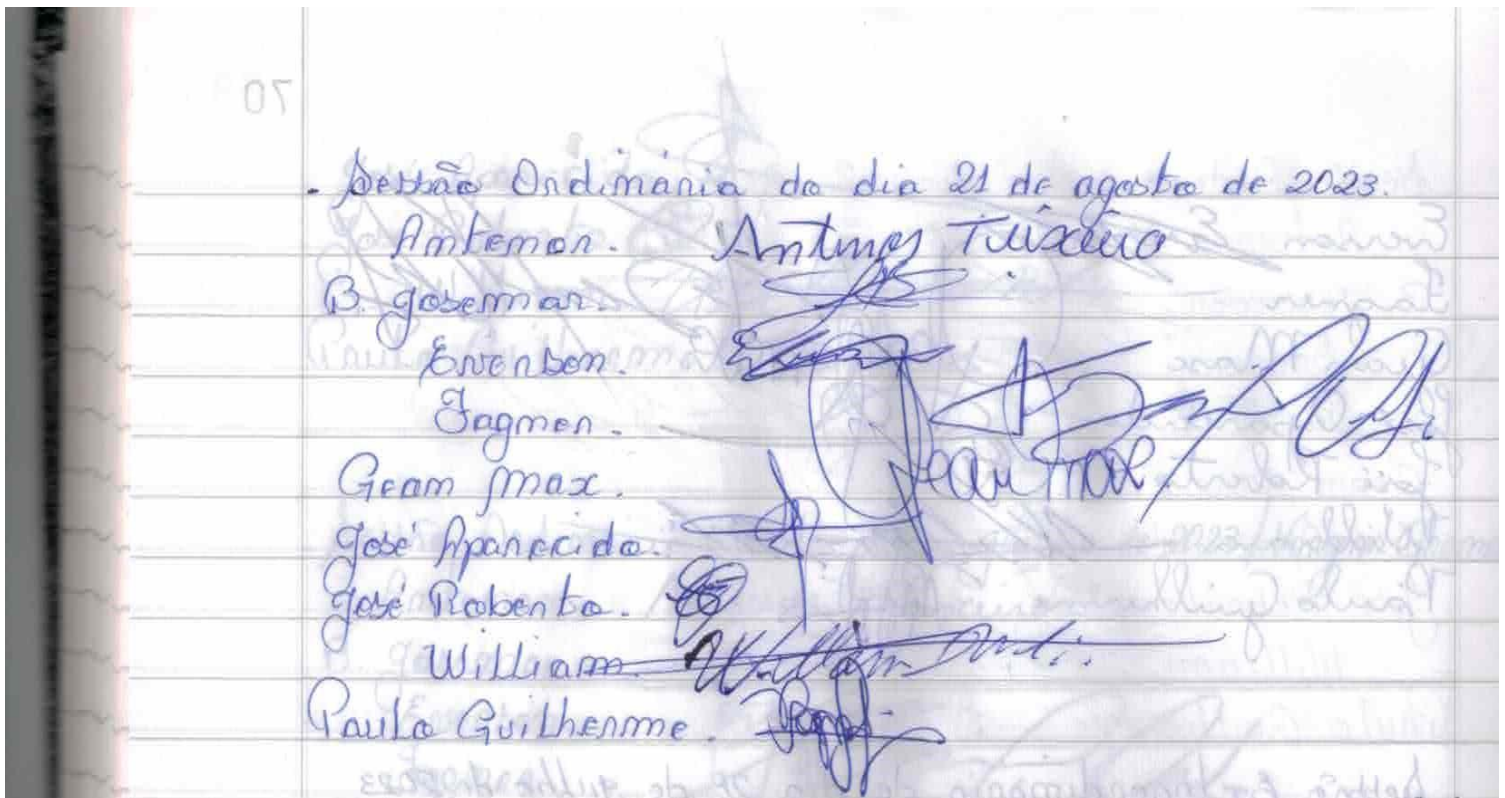 . Sessão Ordinária do dia 21 de agosto de 2023.
Antenor. Teixeira
B. Josemar.
Everson.
Jagner.
Gean Max. Jean Max
José Aparecido.
José Roberto.
William. William
Paulo Guilherme.